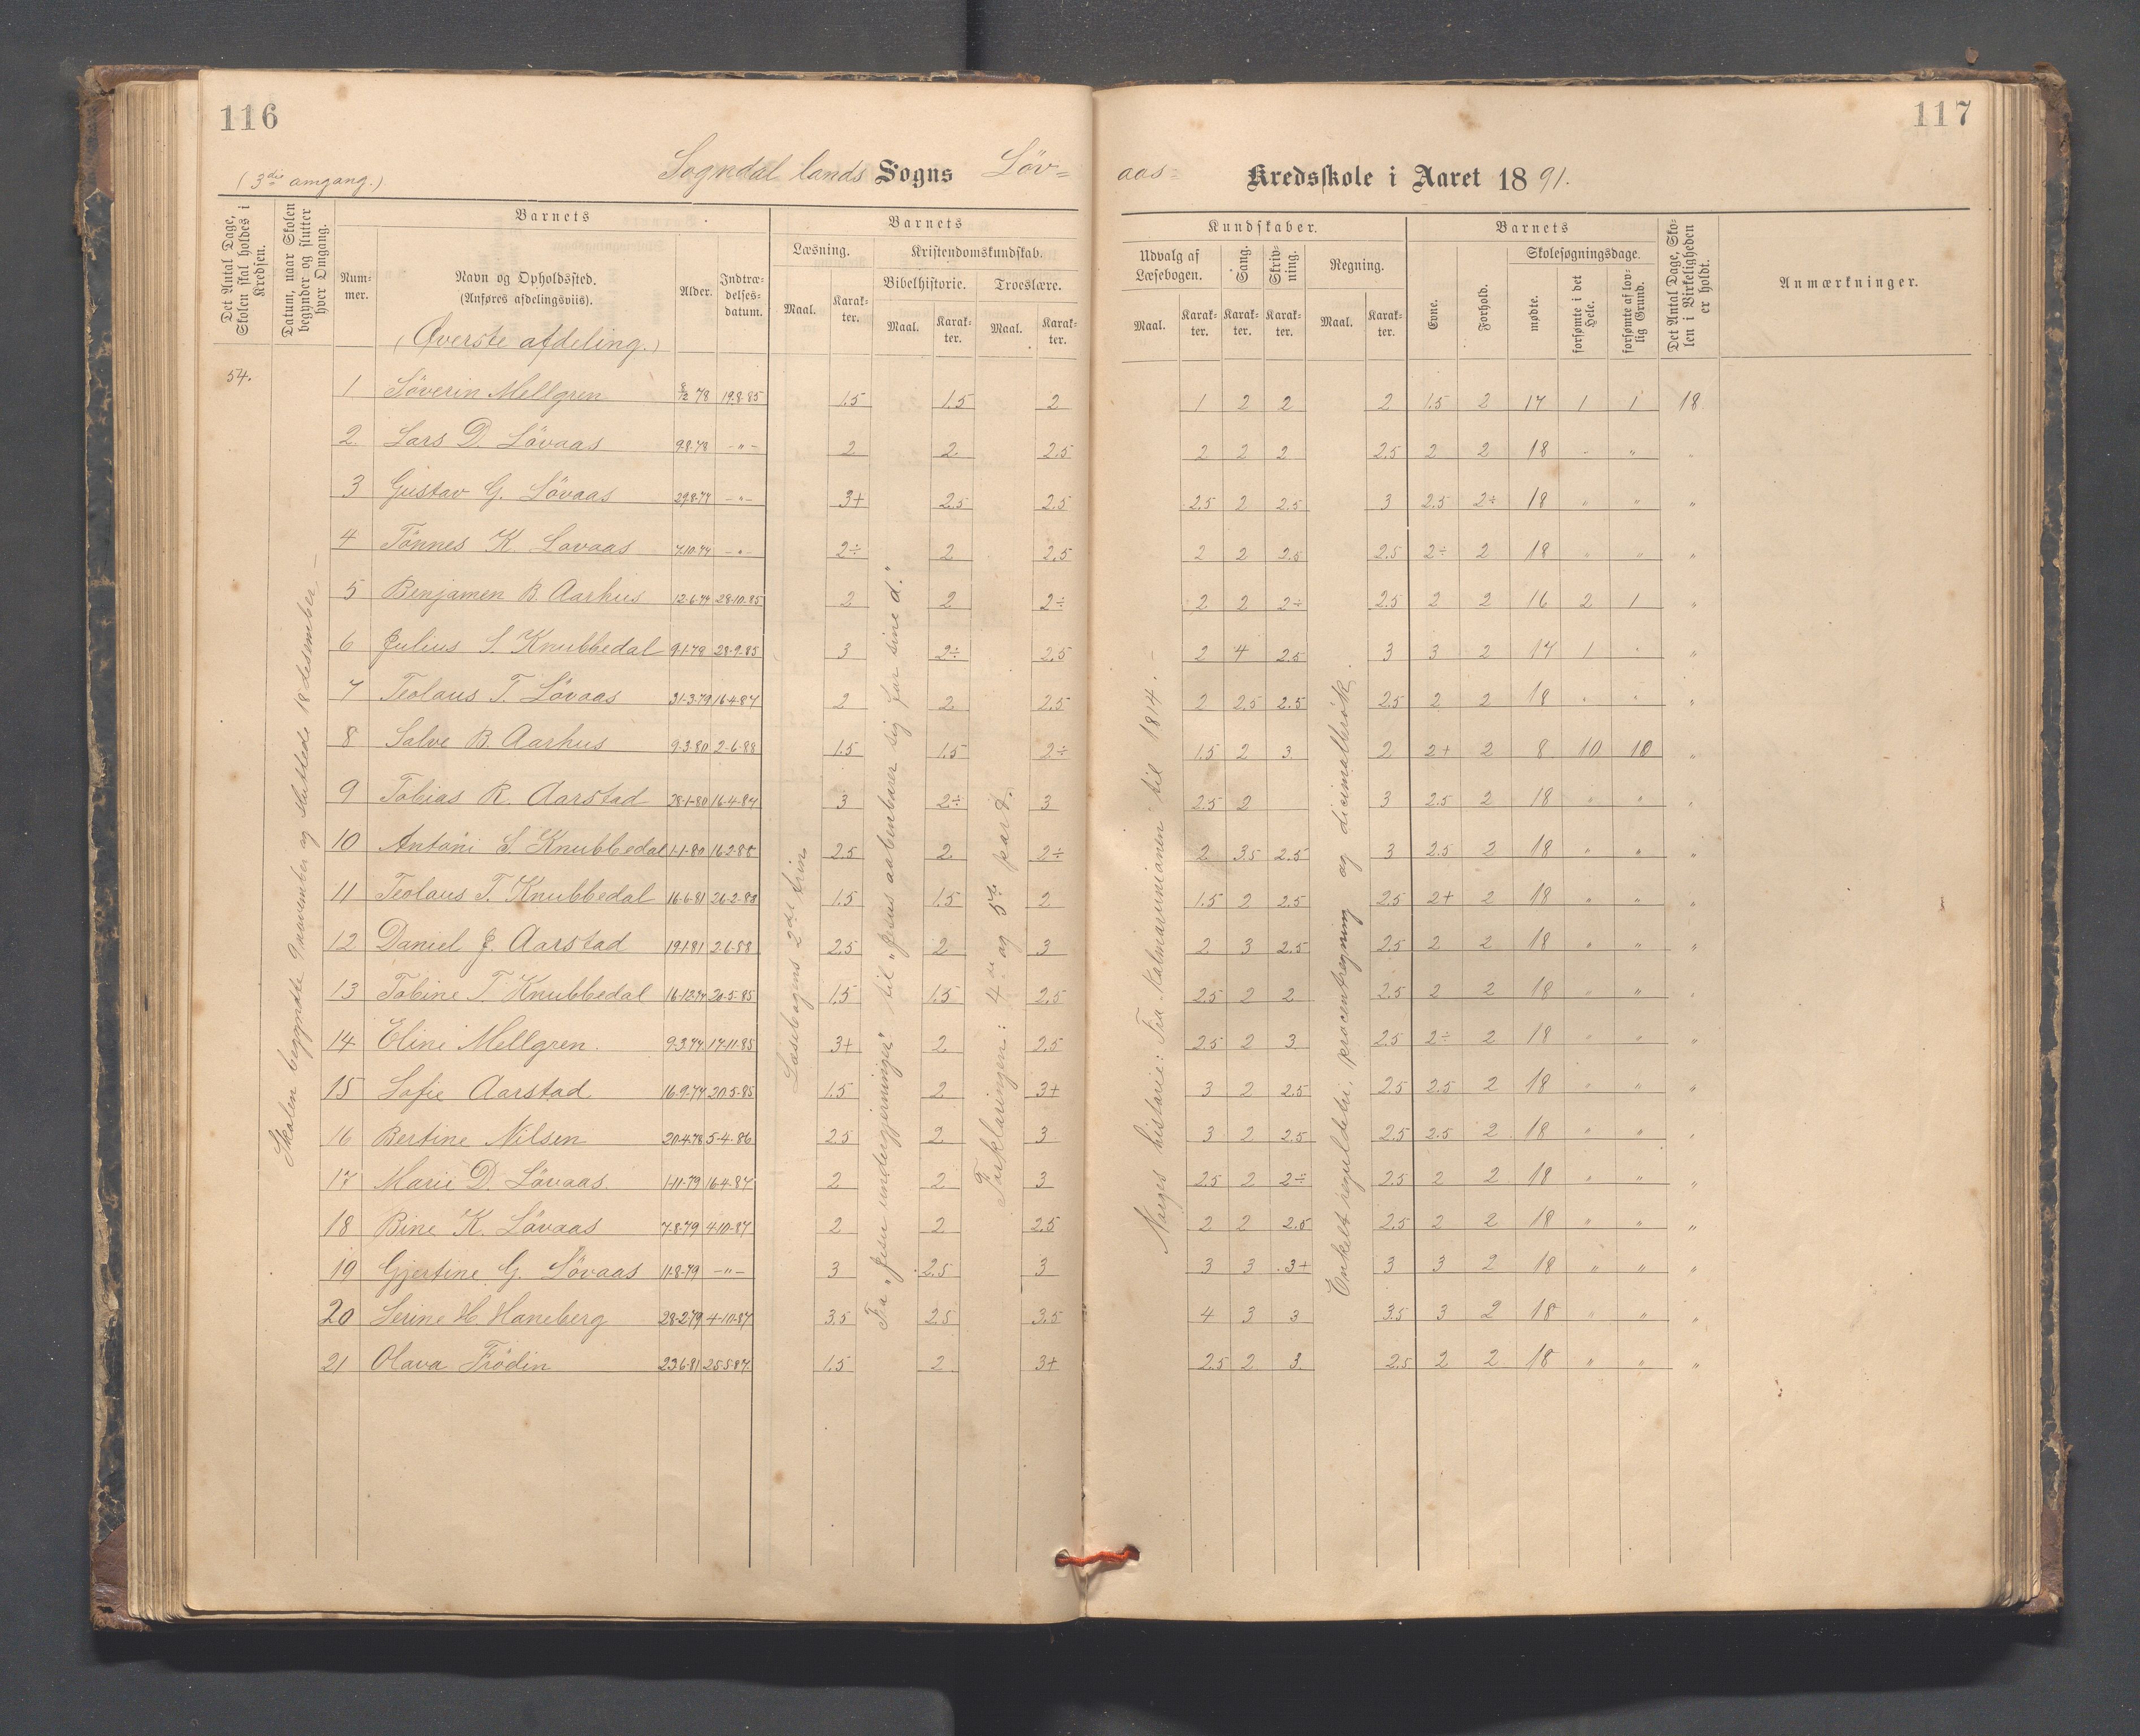 116
117
(3die omgang.)
Sogndal lands Sogns Löv=
aas= Kredsskole i Aaret 1891.
Det Antal Dage, Skolen skal holdes i Kredsen.
Datum, naar Skolen begynder og slutter hver Omgang.
Barnets
Num-mer.
Navn og Opholdssted.
(Anføres afdelingsviis).
(Øverste afdeling.)
Alder.
Indtræ-delses-datum.
Barnets
Læsning.
Maal.
Karak-ter.
Kristendomskundskab.
Bibelhistorie.
Maal.
Karak-ter.
Troeslære.
Maal.
Karak-ter.
Kundskaber.
Udvalg af Læsebogen.
Maal.
Karak-ter.
Sang.
Karak-ter.
Skriv-ning.
Karak-ter.
Regning.
Maal.
Karak-ter.
Barnets
Evne.
Forhold.
Skolesøgningsdage.
mødte.
forsømte i det Hele.
forsømte af lov-lig Grund.
Det Antal Dage, Sko-len i Virkeligheden er holdt.
Anmærkninger.
54.
Skolen begyndte 9 november og sluttede 18 desember –
Læsebogens 2det trin
Fra "Jesu undergjerninger" til "Jesus aabenbarer sig for sine d."
Forklaringen: 4de og 5te part.
Norges historie: Fra Kalmarunionen til 1814. –
Enkelt reguldetri, procentregning og decimalbrök.
1 Söverin Mellgren 8/12 78 19.8.85 1.5 1.5 2 1 2 2 2 1.5 2 17 1 1 18
2. Lars D. Lövaas 9.8.78 –"– 2 2 2.5 2 2 2 2.5 2 2 18 " " "
3 Gustav G. Lövaas 29.8.77 –"– 3+ 2.5 2.5 2.5 2 2.5 3 2.5 2÷ 18 " " "
4 Tönnes K. Lövaas 7.10.77 –"– 2÷ 2 2.5 2 2 2.5 2.5 2÷ 2 18 " " "
5 Benjamen B. Aarhus 12.6.77 28.10.85 2 2 2÷ 2 2 2÷ 2.5 2 2 16 2 1 "
6 Julius S. Knubbedal 9.1.79 28.9.85 3 2÷ 2.5 2 4 2.5 3 3 2 17 1 " "
7 Teolaus T. Lövaas 31.3.79 16.4.87 2 2 2.5 2 2.5 2.5 2.5 2 2 18 " " "
8 Salve B. Aarhus 9.3.80 2-6-88 1.5 1.5 2÷ 1.5 2 3 2 2+ 2 8 10 10 "
9 Tobias R. Aarstad 28-1-80 16-4-87 3 2÷ 3 2.5 2 3 2.5 2 18 " " "
10 Antoni S. Knubbedal 1-1-80 16.2.88 2.5 2 2÷ 2 3.5 2.5 3 2.5 2 18 " " "
11 Teolaus T. Knubbedal 16-6-81 26-2-88 1.5 1.5 2 1.5 2 2.5 2.5 2+ 2 18 " " "
12 Daniel J. Aarstad 19.1.81 2.6.88 2.5 2 3 2 3 2.5 2.5 2 2 18 " " "
13 Tobine T. Knubbedal 16-12.77 20-5-85 1.5 1.5 2.5 2.5 2 2 2.5 2 2 18 " " "
14 Elini Mellgren. 9-3.77 17-11-85 3+ 2 2.5 2.5 2 3 2.5 2÷ 2 18 " " "
15 Sofie Aarstad 16-9-77 20.5-85 1.5 2 3+ 3 2 2.5 2.5 2.5 2 18 " " "
16 Bertine Nilsen 20.4.78 5-4-86 2.5 2 3 3 2 2.5 2.5 2.5 2 18 " " "
17 Marie D. Lövaas. 1-11-79 16-4-87 2 2 3 2.5 2 2÷ 2.5 2 2 18 " " "
18 Bine K. Lövaas 7-8-79 4-10-87 2 2 2.5 2 2 2.5 2.5 2 2 18 " " "
19 Gjertine G. Lövaas 11-8-79 –"– 3 2.5 3 3 3 3+ 3 3 2 18 " " "
20 Serine H. Haneberg 28-2-79 4-10-87 3.5 2.5 3.5 4 3 3 3.5 3 2 18 " " "
21 Olava Frödin 23.6-81 25-5-87 1.5 2 3+ 2.5 2 3 2.5 2 2 18 " " "